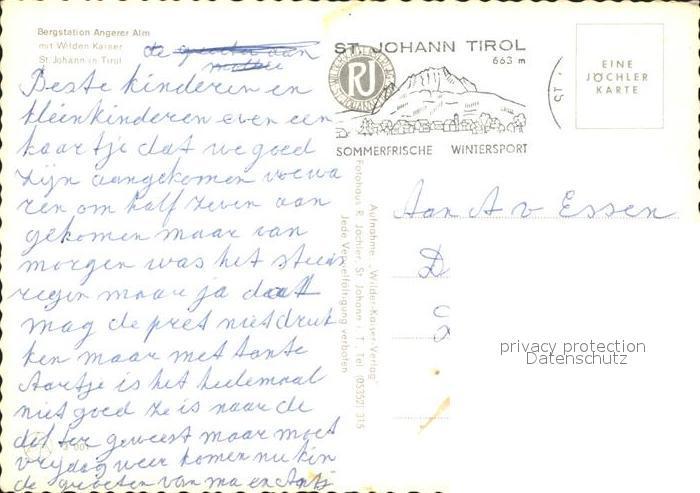 Bergstation Angerer Alm
mit Wilden Kaiser
St. Johann in Tirol
de groeten van
Beste kinderen en
kleinkinderen even een
kaartje dat we goed
zijn aangekomen we wa
ren om half zeven aan
gekomen maar van
morgen was het steen
regen maar ja dat
mag de pret niet druk
ken maar met tante
Aartje is het heelemaal
niet goed ze is naar de
dokter geweest maar moet
vrijdag weer komen nu kin
de groeten van ma en
ST. JOHANN TIROL
663 m
RJ
SOMMERFRISCHE WINTERSPORT
ST.
EINE
JÖCHLER
KARTE
Aufnahme „Wilder-Kaiser-Verlag"
Fotohaus R. Jöchler, St. Johann i. T., Tel. (05352) 315
Jede Vervielfältigung verboten
Aan A v Essen
D
privacy protection
Datenschutz